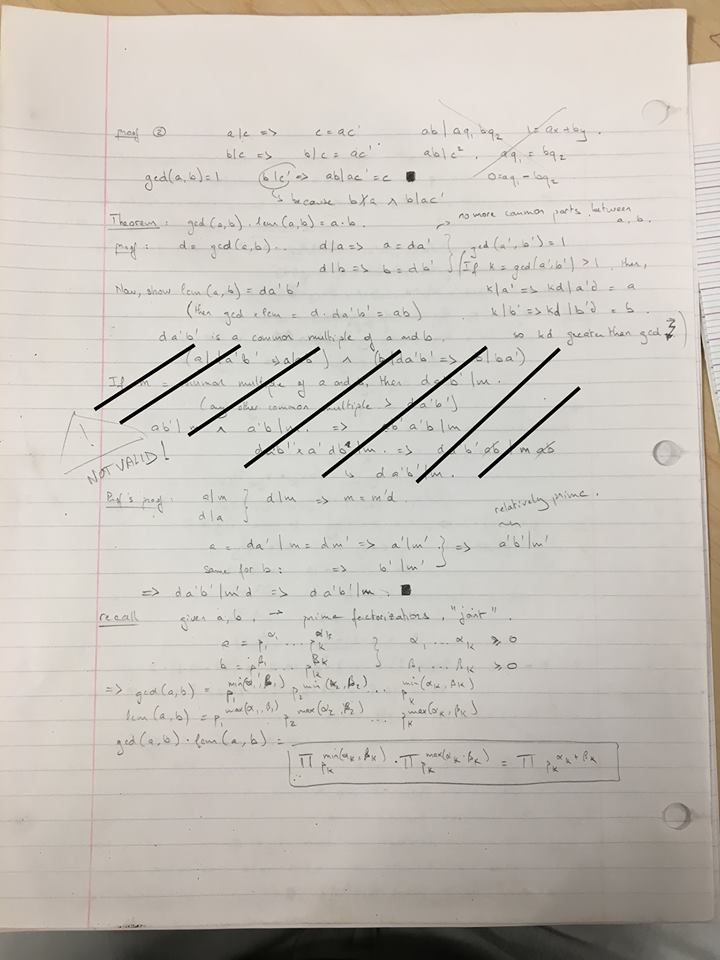 proof ② a|c => c = ac' ab | aq₁ bq₂ 1 = ax + by.
b|c => b|c = ac' ab|c². aq₁ = bq₂
gcd(a,b)=1 b|c' => ab|ac' = c ■ 0 = aq₁ - bq₂
↳ because b∤a ∧ b|ac'
Theorem: gcd(a,b) · lcm(a,b) = a·b. → no more common parts between a, b.
proof: d = gcd(a,b). d|a => a = da' } gcd(a',b') = 1
d|b => b = db' (If k = gcd(a',b') > 1, then,
Now, show lcm(a,b) = da'b' k|a' => kd|a'd = a
(then gcd × lcm = d·da'b' = ab) k|b' => kd|b'd = b.
da'b' is a common multiple of a and b. so kd greater than gcd ↯)
(a|da'b' => a|ab') ∧ (b|da'b' => b|ba')
If m = common multiple of a and b, then da'b'|m.
(any other common multiple > da'b')
ab'|m ∧ a'b|m. => ab'a'b|m
! NOT VALID!
↳ da'b'|m.
Prof's proof: a|m } d|m => m = m'd.
d|a relatively prime.
a = da'|m = dm' => a'|m' } => a'b'|m'
same for b: => b'|m'
=> da'b'|m'd => da'b'|m. ■
recall given a, b, → prime factorizations, "joint".
a = p₁^α₁ ... pₖ^αₖ } α₁ ... αₖ ⩾ 0
b = p₁^β₁ ... pₖ^βₖ β₁ ... βₖ ⩾ 0
=> gcd(a,b) = p₁^min(α₁,β₁) p₂^min(α₂,β₂) ... pₖ^min(αₖ,βₖ)
lcm(a,b) = p₁^max(α₁,β₁) p₂^max(α₂,β₂) ... pₖ^max(αₖ,βₖ)
gcd(a,b) · lcm(a,b) =
∏ pₖ^min(αₖ,βₖ) · ∏ pₖ^max(αₖ,βₖ) = ∏ pₖ^αₖ+βₖ